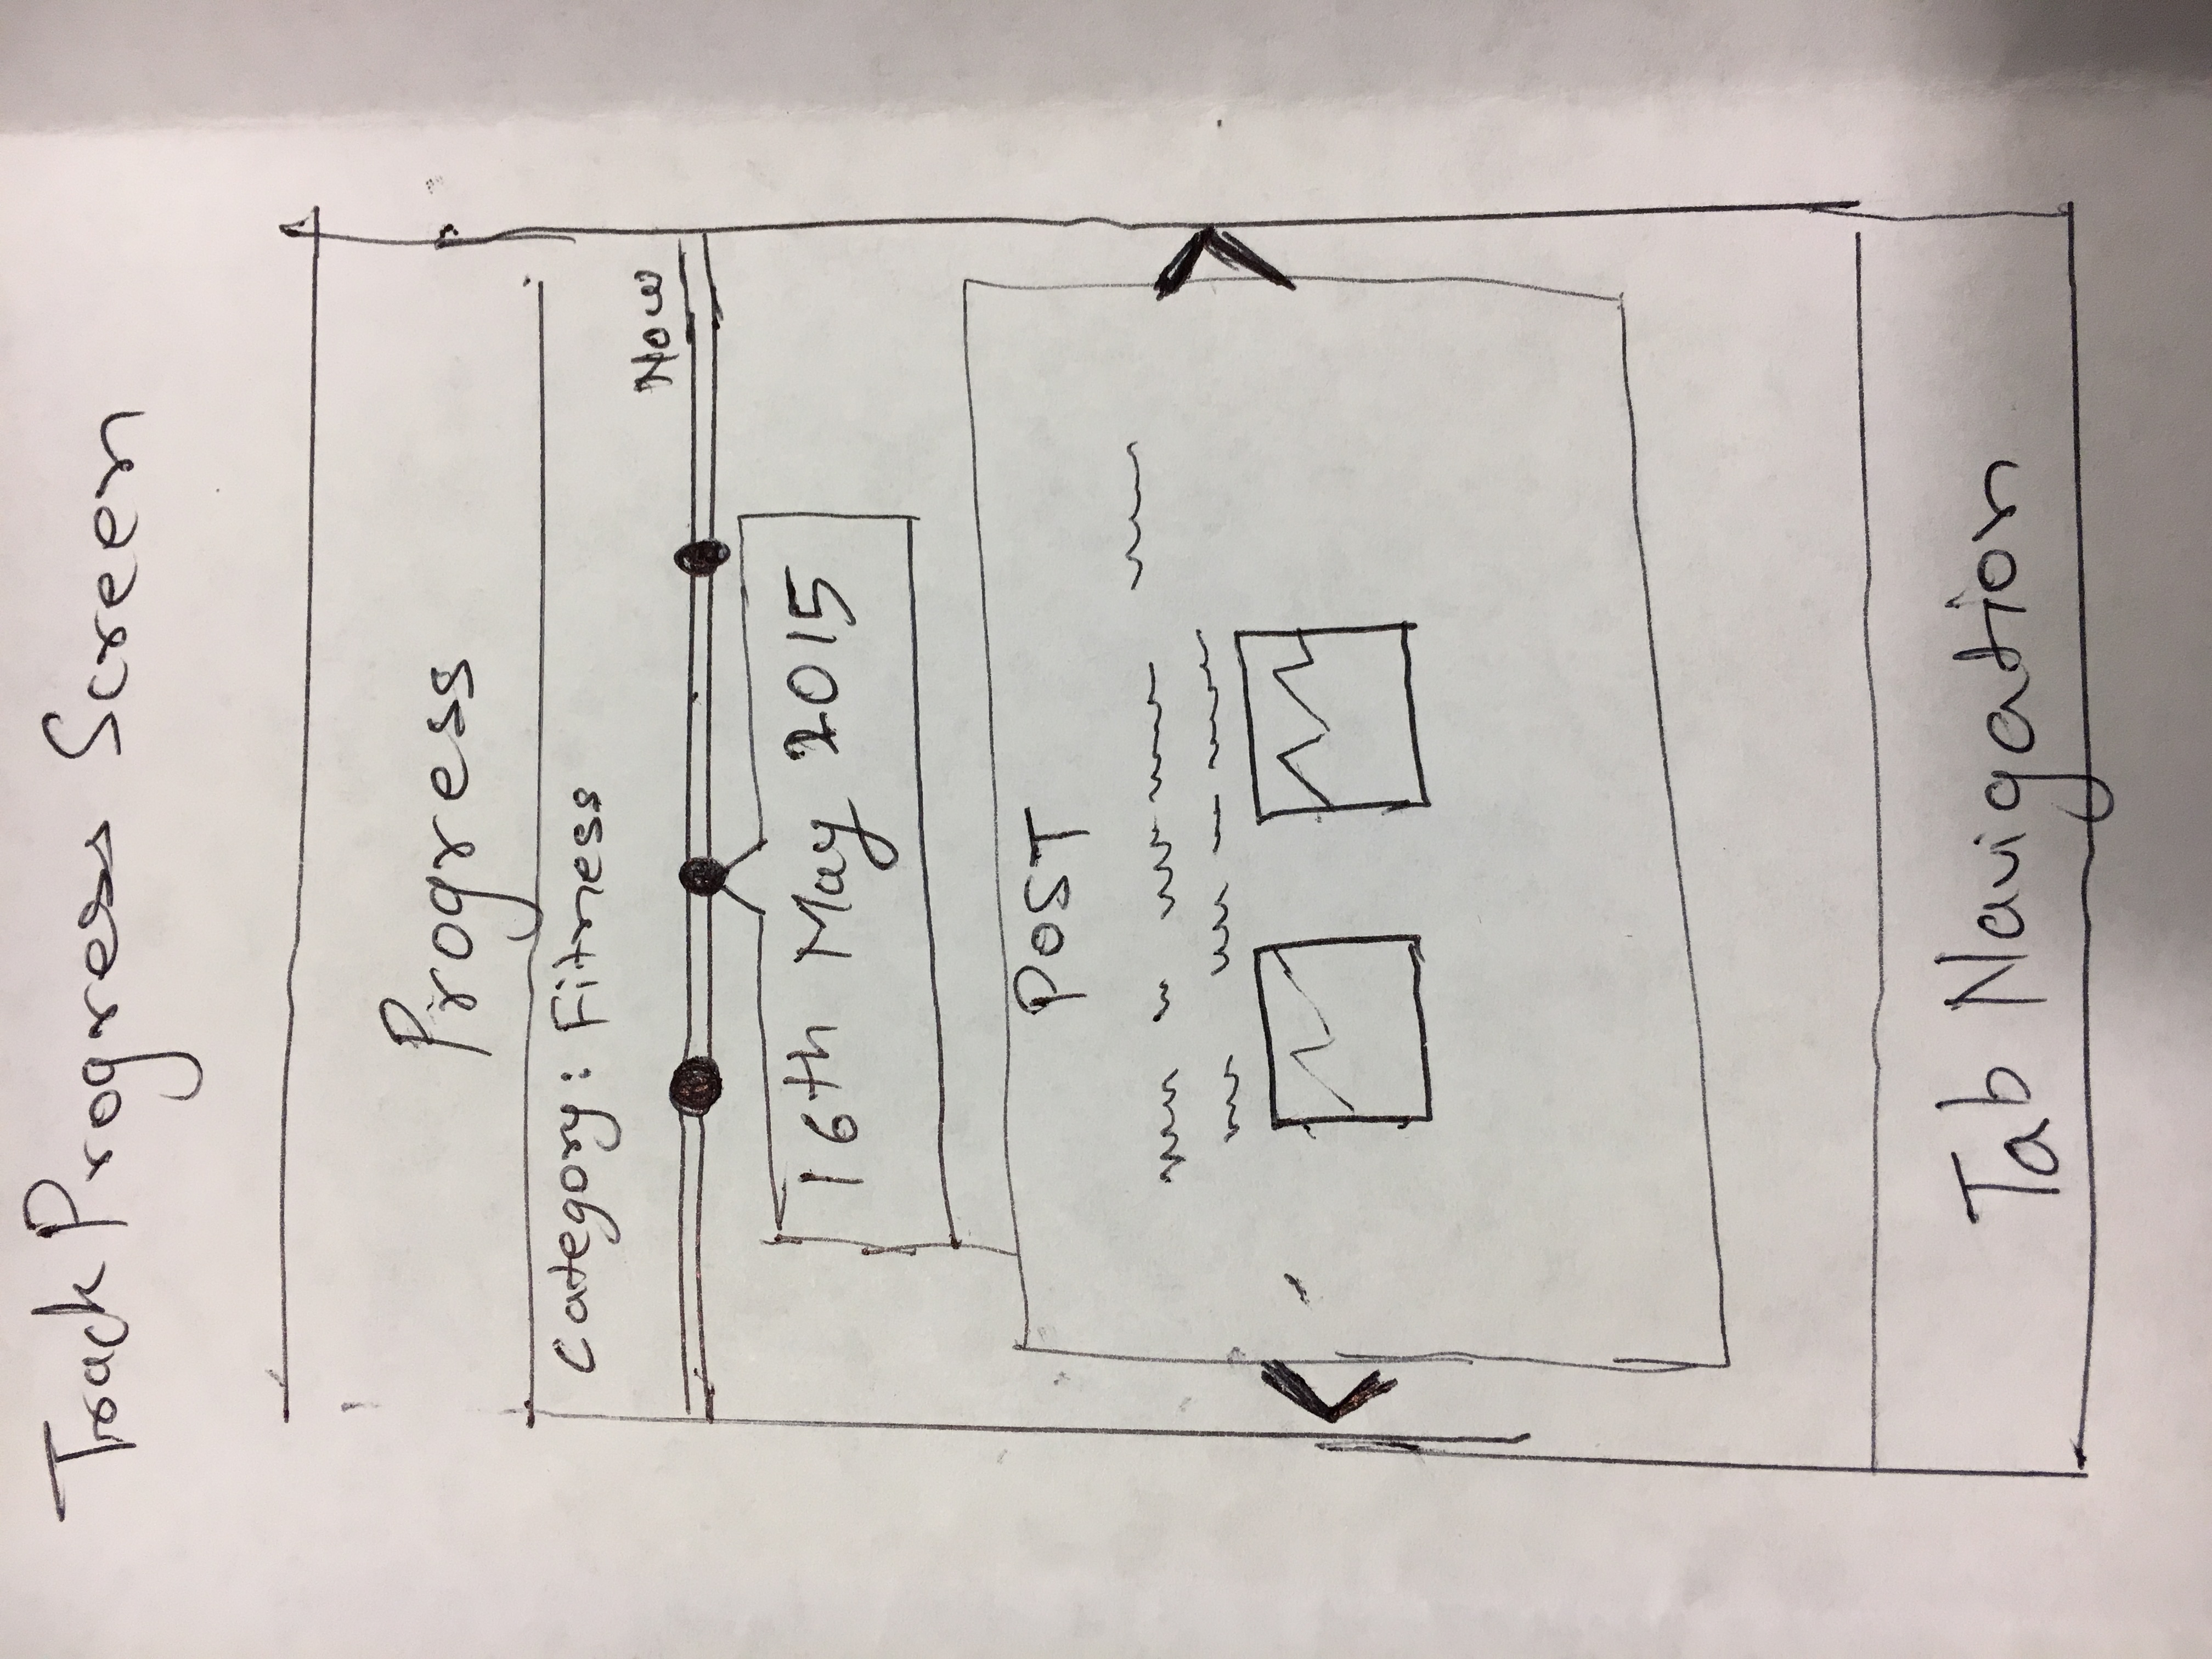 Track Progress Screen
Progress
Category: Fitness
Now
16th May 2015
POST
Tab Navigation